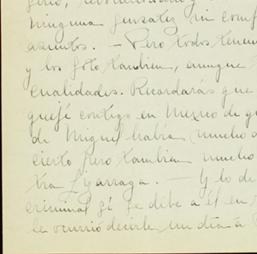 ninguna sensatez ni conf
asuntos. — Pero todos tenem
y los foto tambien, aunque
cualidades. Recordarás que
quejé contigo en Mexico de q
de Miguel había mucho d
cierto pero tambien mucho
tra Lizarraga. — Y lo de
criminal sí se debe a él en
le ocurrió decirle un día a